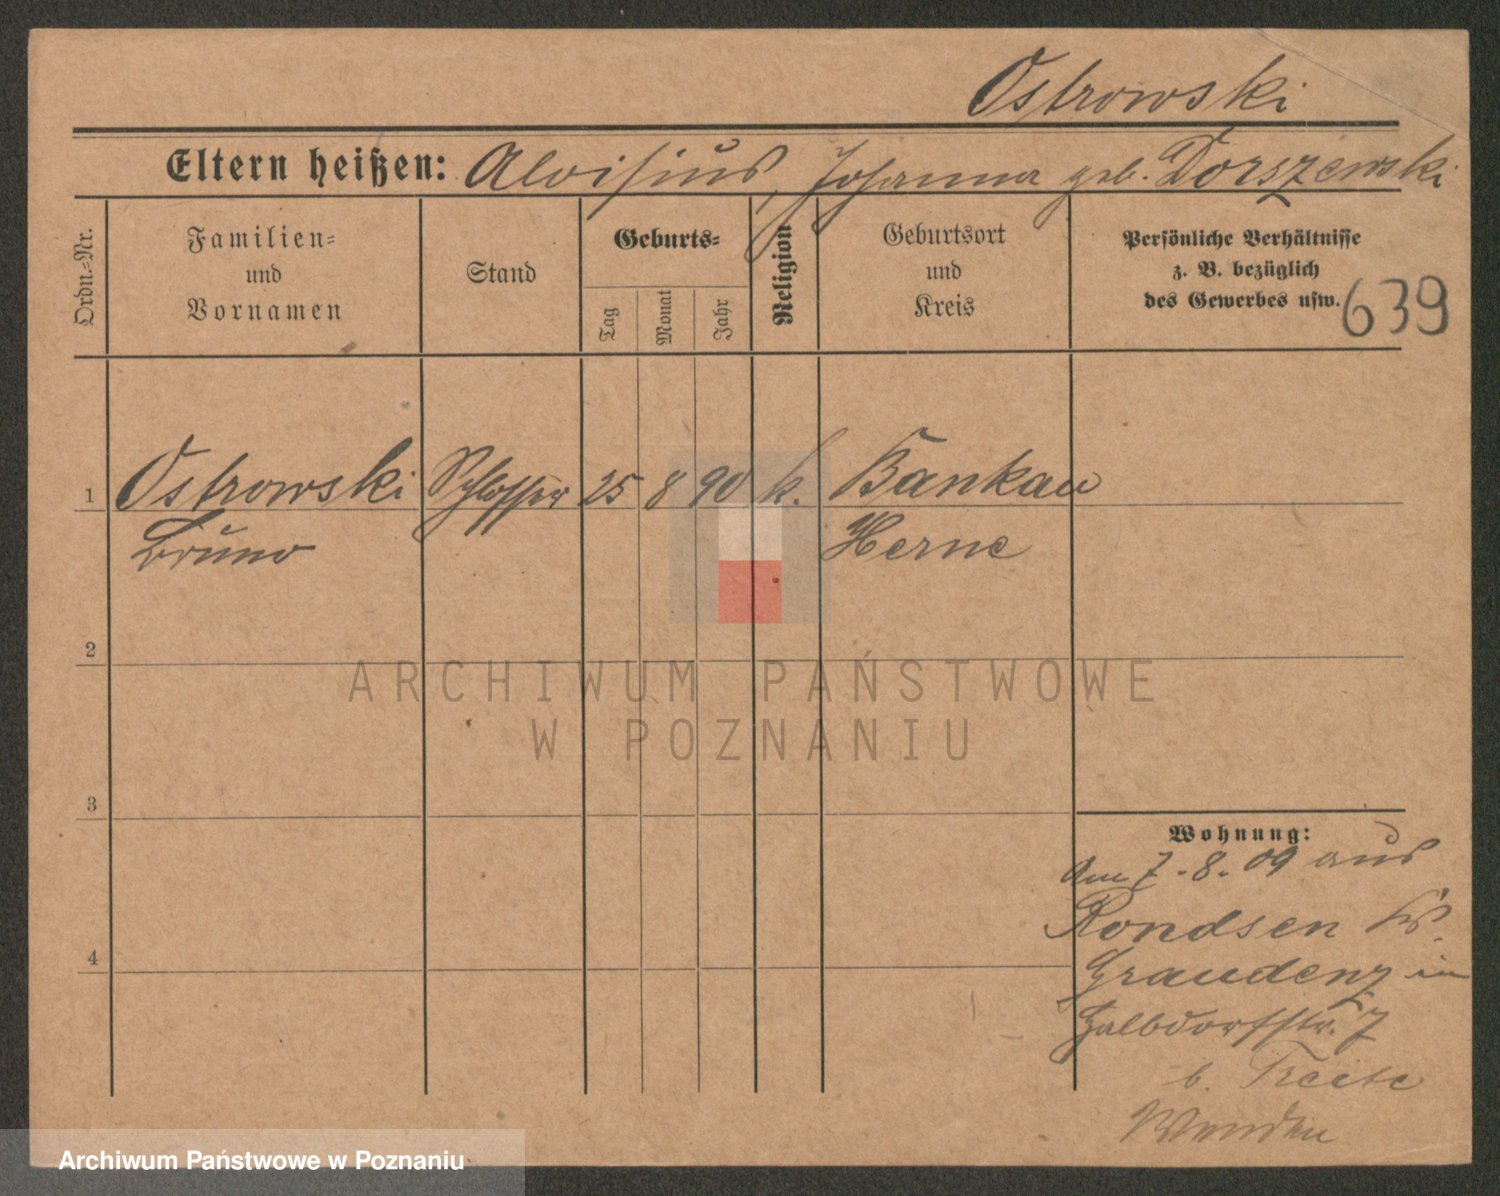 Ostrowski
Eltern heißen: Aloisius, Johanna geb. Dorszewski
Ordn.-Nr.
Familien-
und
Vornamen
Stand
Geburts-
Tag
Monat
Jahr
Religion
Geburtsort
und
Kreis
Persönliche Verhältnisse
z. B. bezüglich
des Gewerbes usw.
639
1 Ostrowski Schlosser 25 8 90 k. Bankau
Bruno Herne
2
ARCHIWUM PAŃSTWOWE
W POZNANIU
3
Wohnung:
Am 7.8.09 aus
Rondsen Kr.
4
Graudenz in
Halbdorfstr. 7
b.
Archiwum Państwowe w Poznaniu